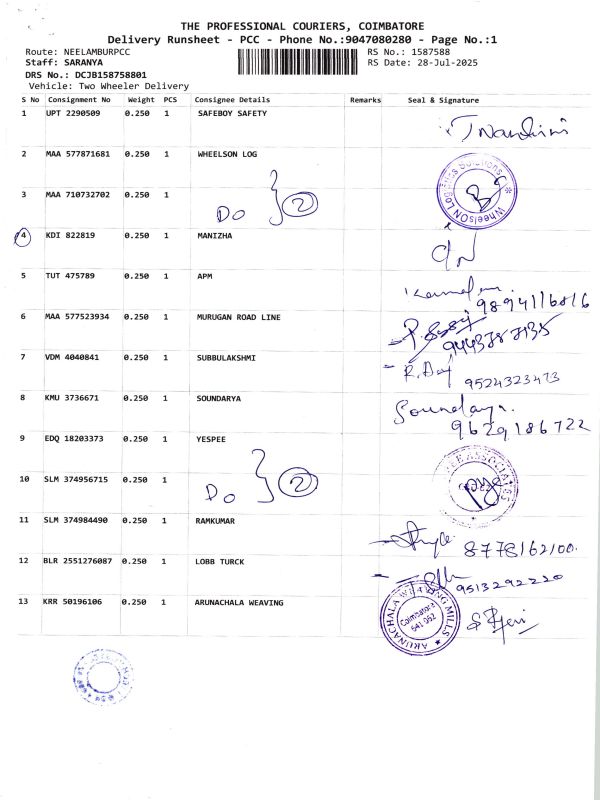 THE PROFESSIONAL COURIERS, COIMBATORE
Delivery Runsheet - PCC - Phone No.:9047080280 - Page No.:1
Route: NEELAMBURPCC
RS No.: 1587588
Staff: SARANYA
RS Date: 28-Jul-2025
DRS No.: DCJB158758801
Vehicle: Two Wheeler Delivery
S No Consignment No Weight PCS Consignee Details Remarks Seal & Signature
1 UPT 2290509 0.250 1 SAFEBOY SAFETY
2 MAA 577871681 0.250 1 WHEELSON LOG
WheelsON Logistics Solutions
3 MAA 710732702 0.250 1
Do } 2
4 KDI 822819 0.250 1 MANIZHA
5 TUT 475789 0.250 1 APM
9894116816
6 MAA 577523934 0.250 1 MURUGAN ROAD LINE
9443787135
7 VDM 4040841 0.250 1 SUBBULAKSHMI
9524323473
8 KMU 3736671 0.250 1 SOUNDARYA
Soundarya.
9629186722
9 EDQ 18203373 0.250 1 YESPEE
10 SLM 374956715 0.250 1
Do } 2
11 SLM 374984490 0.250 1 RAMKUMAR
8778162100.
12 BLR 2551276087 0.250 1 LOBB TURCK
9513292220
13 KRR 50196106 0.250 1 ARUNACHALA WEAVING
ARUNACHALA WEAVING MILLS
Coimbatore
641 062